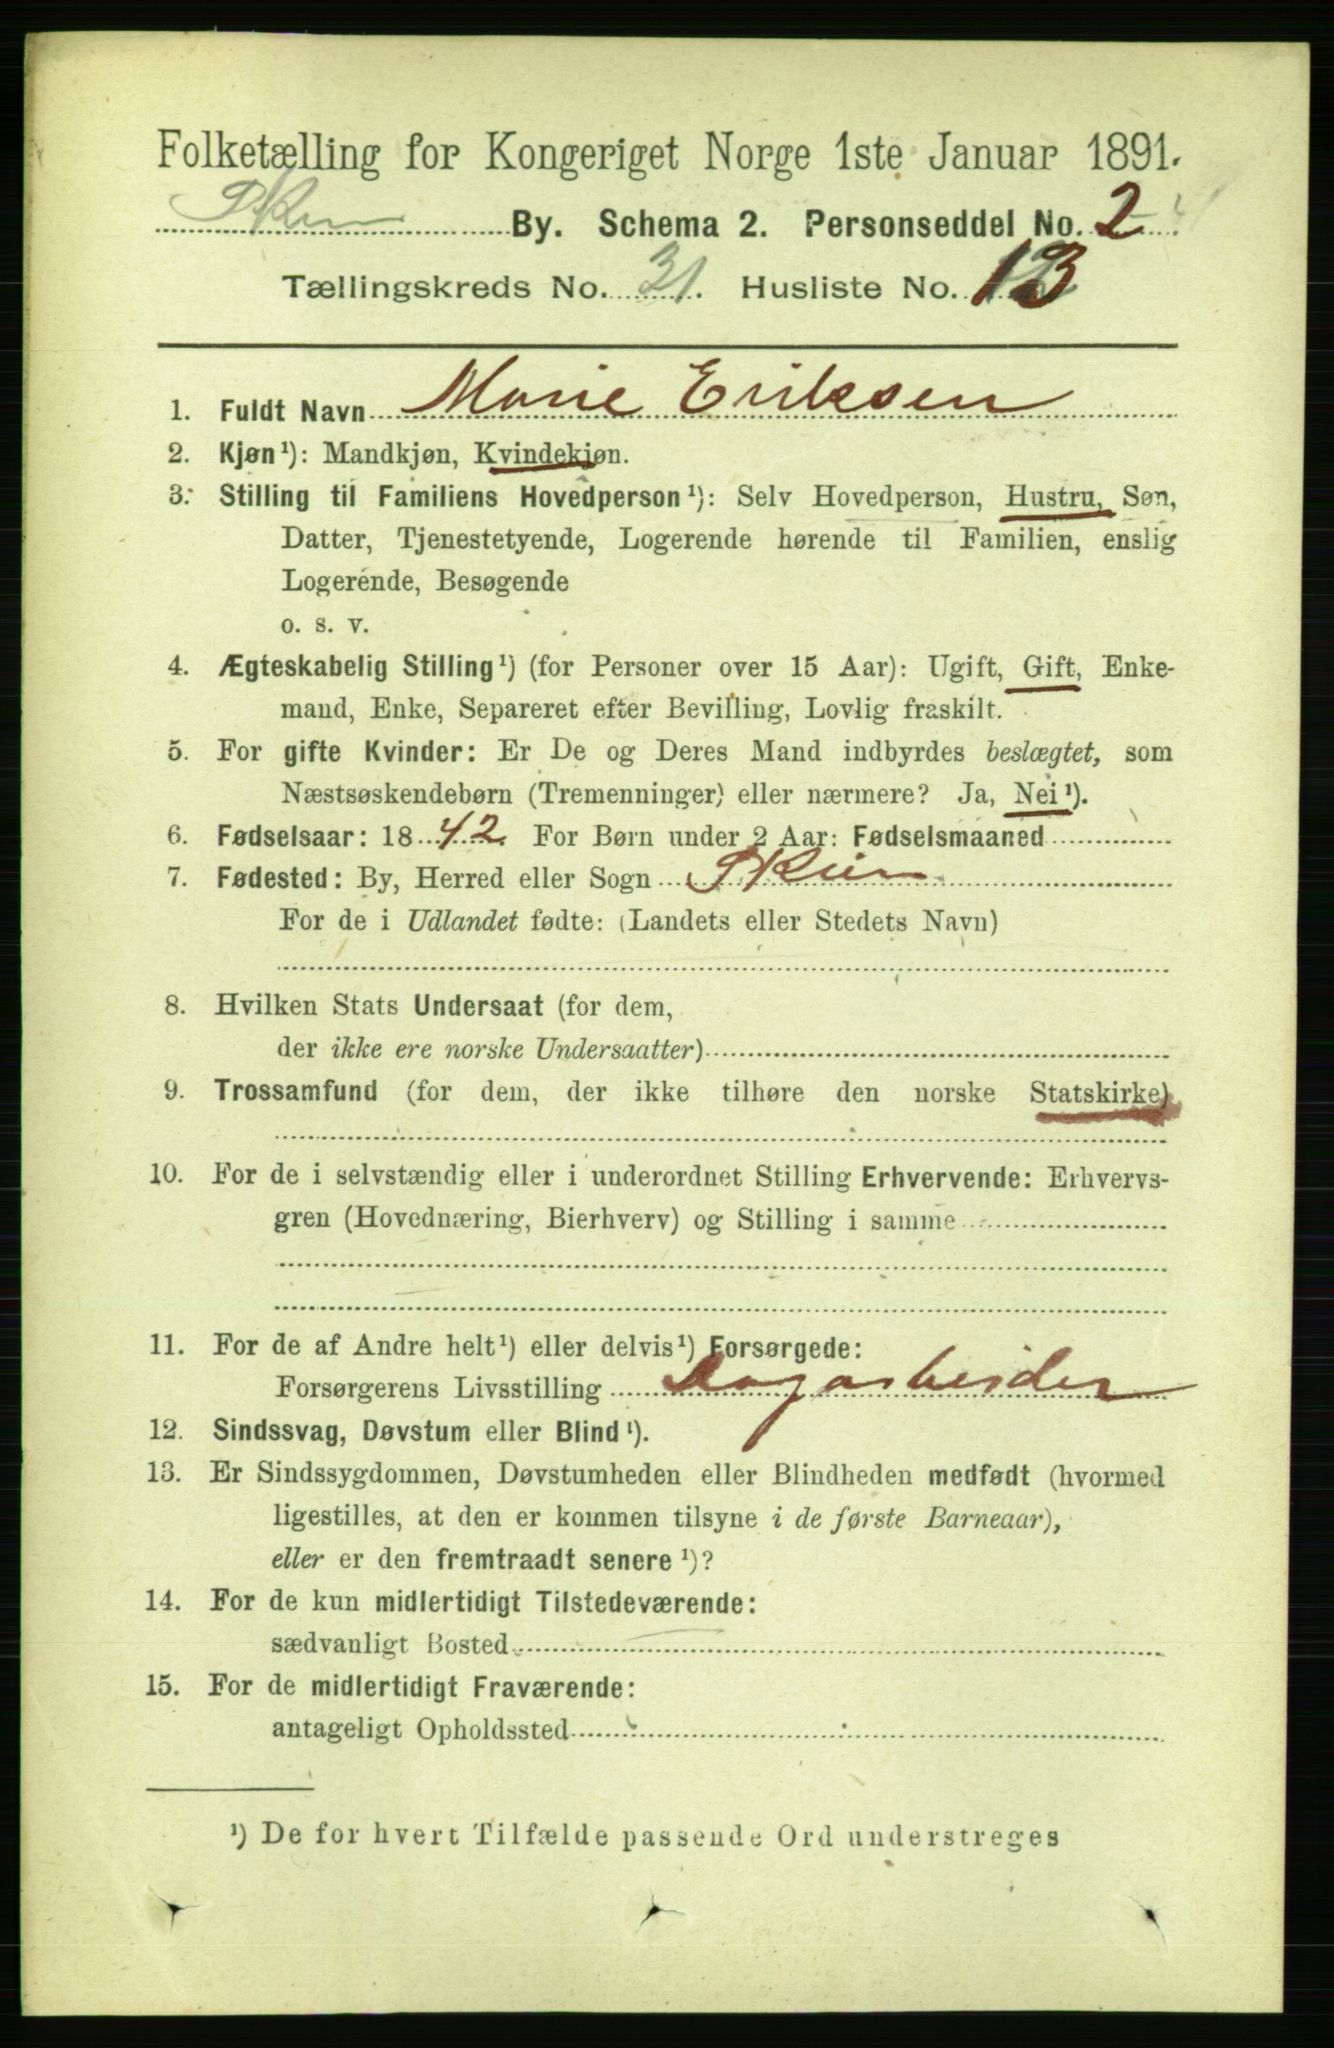 Folketælling for Kongeriget Norge 1ste Januar 1891.
Skien By. Schema 2. Personseddel No. 2
Tællingskreds No. 31. Husliste No. 13
1. Fuldt Navn Marie Eriksen
2. Kjøn¹): Mandkjøn, Kvindekjøn.
3. Stilling til Familiens Hovedperson¹): Selv Hovedperson, Hustru, Søn,
Datter, Tjenestetyende, Logerende hørende til Familien, enslig
Logerende, Besøgende
o. s. v.
4. Ægteskabelig Stilling¹) (for Personer over 15 Aar): Ugift, Gift, Enke-
mand, Enke, Separeret efter Bevilling, Lovlig fraskilt.
5. For gifte Kvinder: Er De og Deres Mand indbyrdes beslægtet, som
Næstsøskendebørn (Tremenninger) eller nærmere? Ja, Nei¹).
6. Fødselsaar: 1842. For Børn under 2 Aar: Fødselsmaaned
7. Fødested: By, Herred eller Sogn Skien
For de i Udlandet fødte: (Landets eller Stedets Navn)
8. Hvilken Stats Undersaat (for dem,
der ikke ere norske Undersaatter)
9. Trossamfund (for dem, der ikke tilhøre den norske Statskirke)
10. For de i selvstændig eller i underordnet Stilling Erhvervende: Erhvervs-
gren (Hovednæring, Bierhverv) og Stilling i samme
11. For de af Andre helt¹) eller delvis¹) Forsørgede:
Forsørgerens Livsstilling Dagarbeider
12. Sindssvag, Døvstum eller Blind¹).
13. Er Sindssygdommen, Døvstumheden eller Blindheden medfødt (hvormed
ligestilles, at den er kommen tilsyne i de første Barneaar),
eller er den fremtraadt senere¹)?
14. For de kun midlertidigt Tilstedeværende:
sædvanligt Bosted
15. For de midlertidigt Fraværende:
antageligt Opholdssted
¹) De for hvert Tilfælde passende Ord understreges